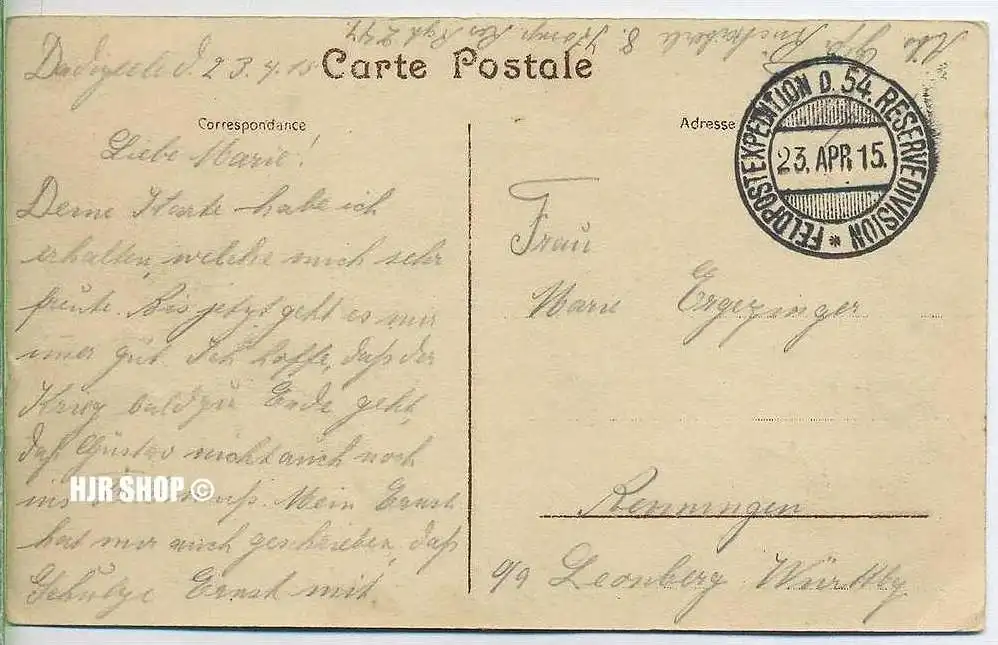 Dadizeele d. 23.4.15
Carte Postale
Correspondance
Liebe Marie!
Deine Karte habe ich
erhalten, welche mich sehr
freute. Bis jetzt geht es mir
imer gut. Ich hoffe, daß der
Krieg bald zu Ende geht,
daß Gustav nicht auch noch
ins muß. Mein Ernst
hat mir auch geschrieben, daß
Schulze Ernst mit
HJR SHOP ©
8. Komp. Res. Rgt 247
Adresse
FELDPOSTEXPEDITION D. 54. RESERVEDIVISION *
23. APR 15.
Frau
Marie Ergezinger
Renningen
O/A Leonberg Württbg